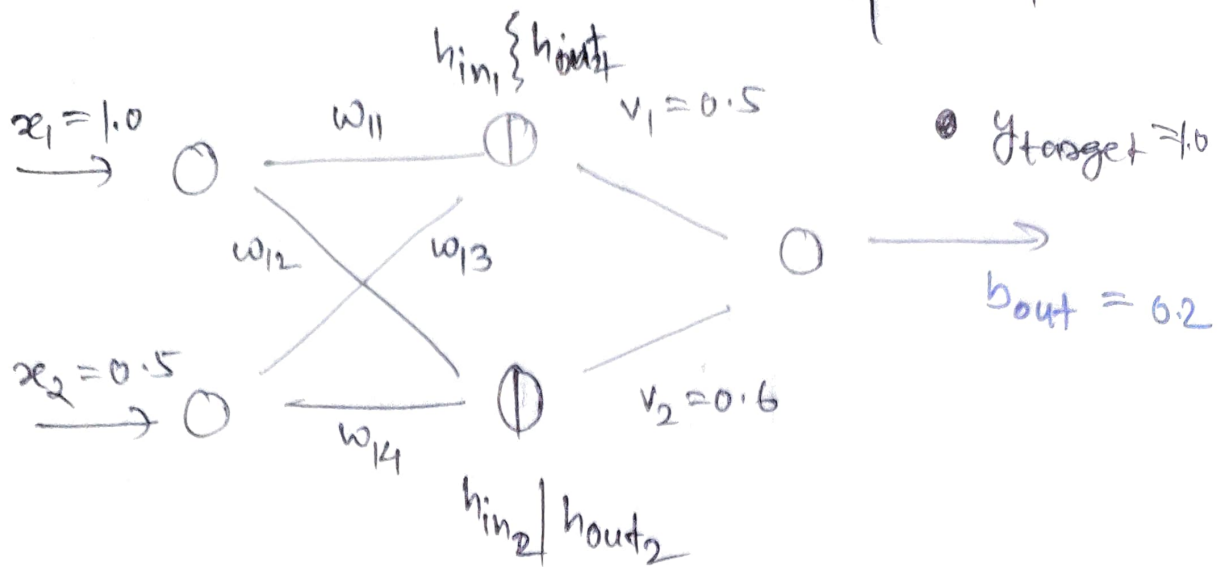 h_in₁ } h_out₁
x₁ = 1.0
w₁₁
v₁ = 0.5
y_target = 1.0
w₁₂
w₁₃
b_out = 0.2
x₂ = 0.5
v₂ = 0.6
w₁₄
h_in₂ | h_out₂